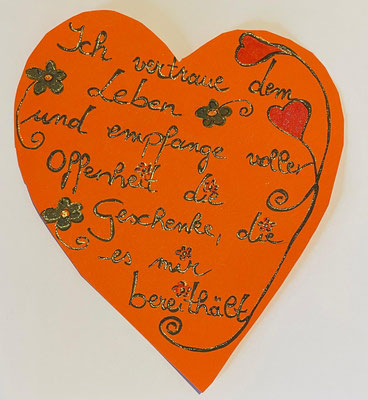 Ich vertraue dem
Leben
und empfange voller
Offenheit die
Geschenke, die
es mir
bereithält